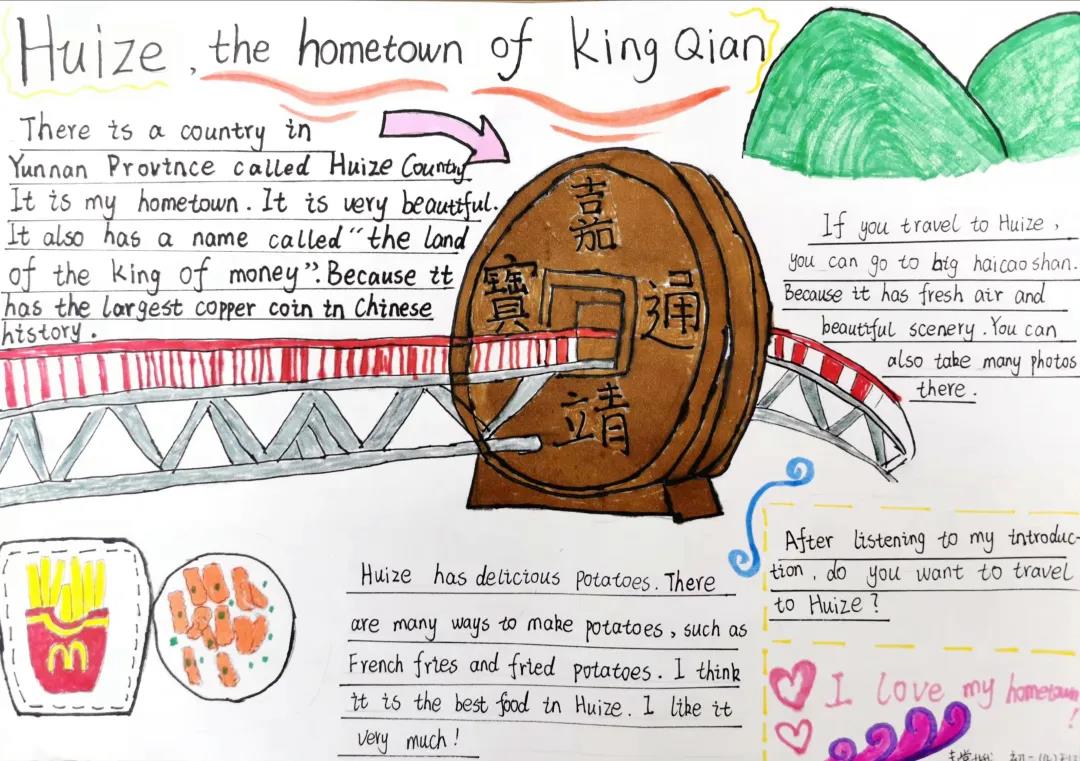 Huize, the hometown of King Qian
There is a country in
Yunnan Province called Huize Country
It is my hometown. It is very beautiful.
It also has a name called “the land
of the king of money”. Because it
has the largest copper coin in Chinese
history.
嘉
寶 通
靖
If you travel to Huize,
you can go to big haicaoshan.
Because it has fresh air and
beautiful scenery. You can
also take many photos
there.
Huize has delicious potatoes. There
are many ways to make potatoes, such as
French fries and fried potatoes. I think
it is the best food in Huize. I like it
very much!
After listening to my introduc-
tion, do you want to travel
to Huize?
I love my hometown
!